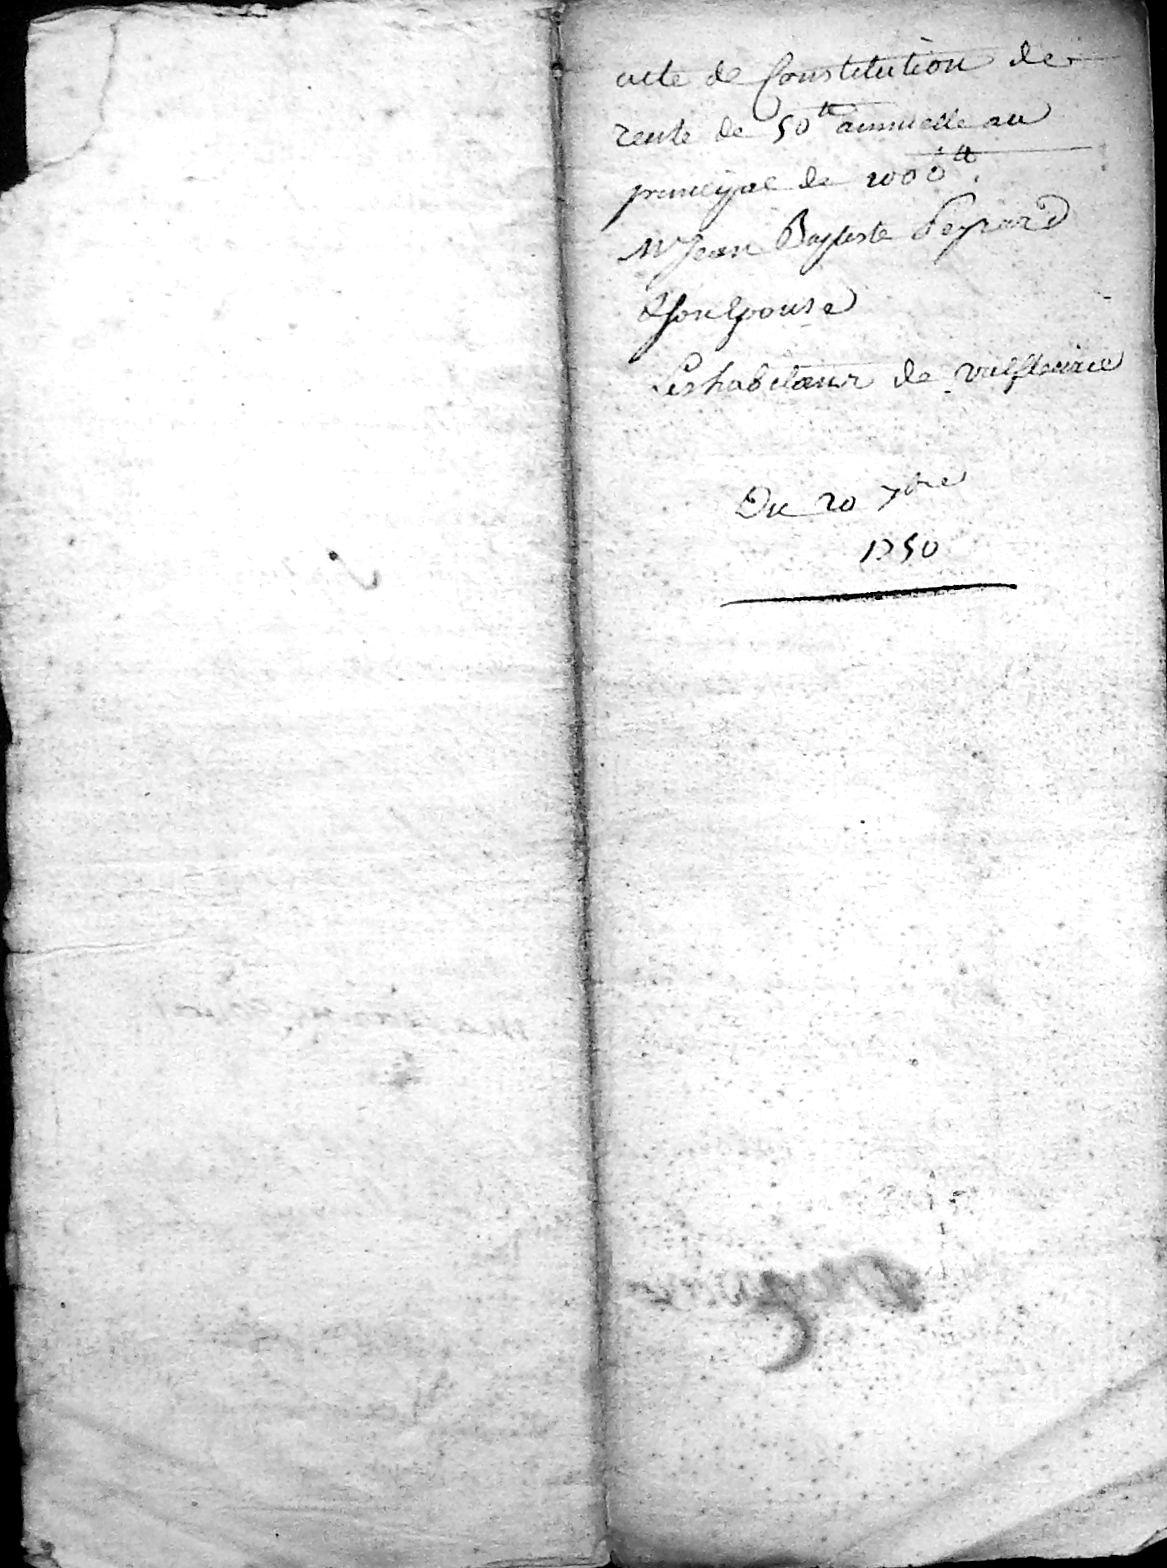 acte de Constitution de
rente de 50tt annuelle au
principal de 1000tt
Mr Jean Baptiste Pepard
& son Epouse
Les habitans de
Du 20 7bre
1750